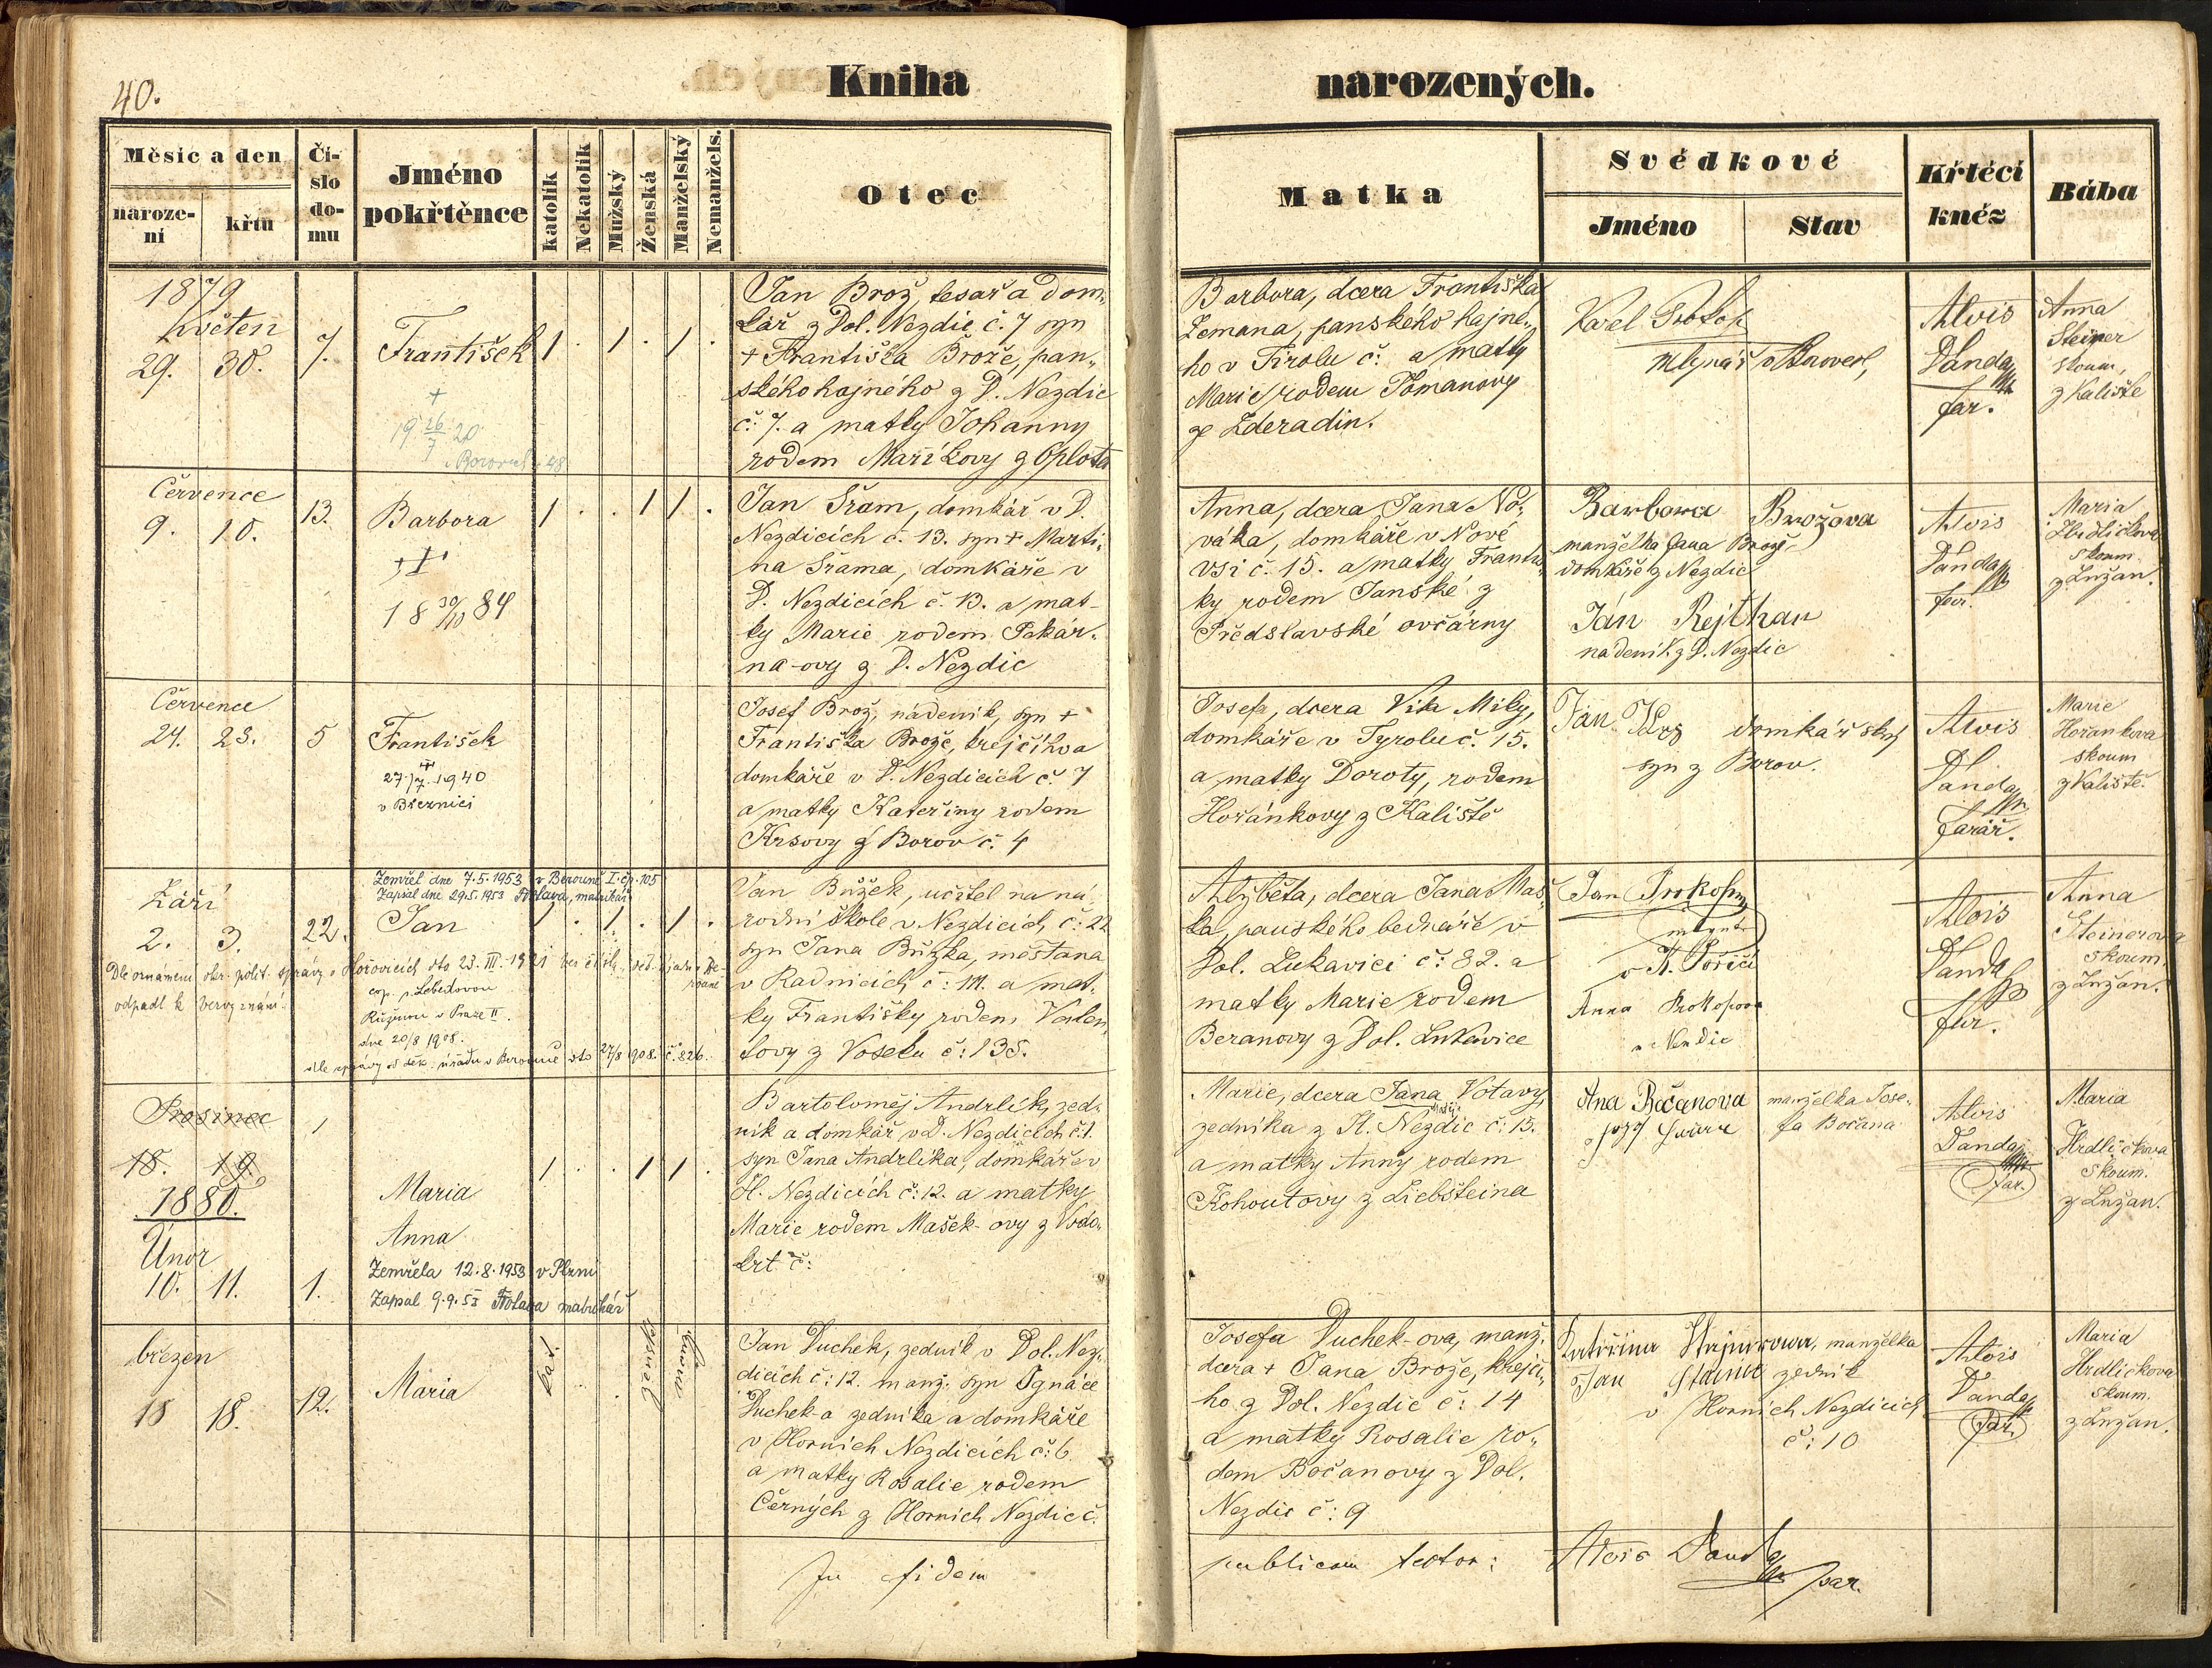 40.
Kniha narozených.
Měsíc a den
naroze-
ní
křtu
Čí-
slo
do-
mu
Jméno
pokřtěnce
katolík
Nekatolík
Mužský
Ženská
Manželský
Nemanžels.
Otec
Matka
Svědkové
Jméno
Stav
Křtěcí
kněz
Bába
1879
Květen
29. 30.
7.
František
+
1926/7 20
1 . 1 . 1 .
Jan Brož, tesař a dom-
kář z Dol. Nezdic č. 7 syn
+ Františka Brože, pan-
ského hajného z D. Nezdic
č. 7. a matky Johanny
rodem Maříkovy z Oplota
Barbora, dcera Františka
Zemana, panského hajné-
ho v Tirolu č: a matky
Marie rodem Tomanovy
ze Zderadin.
Karel Prokop
mlynář
Alois
Danda
far.
Anna
Steiner
skoum,
z Kaliště
Července
9. 10.
13.
Barbora
18 30/10 84
1 . . 1 1 .
Jan Šram, domkář v D.
Nezdicích č. 13. syn + Marti-
na Šrama, domkáře v
D. Nezdicích č. 13. a mat-
ky Marie rodem Pekár-
na-ovy z D. Nezdic
Anna, dcera Jana No-
váka, domkáře v Nové
vsi č. 15. a matky Františ-
ky rodem Janské z
Předslavské ovčárny
Barbora Brožova
manželka Jana Brože
domkáře z Nezdic
Ján Rejthan
nadeník z D. Nezdic
Alois
Danda
far.
Maria
Hrdličkova
skoum.
z Lužan.
Července
24. 25.
5
František
27/7. 1940
v Březnici
Josef Brož, nádeník, syn +
Františka Brože, krejčího a
domkáře v D. Nezdicích č. 7
a matky Kateřiny rodem
Krsovy z Borov č. 4
Josefa, dcera Víta Mily,
domkáře v Tyrolu č. 15.
a matky Doroty, rodem
Hořánkovy z Kaliště
Jan Krs domkářský
syn z Borov.
Alois
Danda
farář.
Marie
Hořankova
skoum
z Kaliště.
Zemřel dne 7.5.1953 v Berouně I. čp. 105
Zapsal dne 29.5.1953 Votava, matrikář
Září
2. 3.
22.
Jan
1 . 1 . 1 .
Dle oznámení okr. polit. správy v Hořovicích dto 23. III. 1921
odpadl k bezvyznání.
cop. s Lebedovou
Růženou v Praze II.
dne 20/8 1908.
dle zprávy od děk. úřadu v Berouně dto 27/8 1908. č. 826.
Jan Bůžek, učitel na ná-
rodní škole v Nezdicích, č: 22
syn Jana Bůžka, měšťana
v Radnicích č: 111. a mat-
ky Františky rodem Valen-
tovy z Voseku č: 138.
Alžběta, dcera Jana Maš-
ka, panského bednáře v
Dol. Lukavici č: 82. a
matky Marie rodem
Beranovy z Dol. Lukavice
Jan Prokop
mlynář
v H. Poříčí
Anna Prokopova
Alois
Danda
far.
Anna
Steinerova
skoum.
z Lužan.
Prosinec
18. 19.
1
1880.
Únor
10. 11.
1.
Maria
Anna
Zemřela 12.8.1953 v Plzni
Zapsal 9.9.53 Votava matrikář
1 . . 1 1 .
Bartoloměj Andrlík, zed-
ník a domkář v D. Nezdicích č: 1.
syn Jana Andrlíka, domkáře v
H. Nezdicích č: 12. a matky
Marie rodem Mašek-ovy z Vodo-
krt č:
Marie, dcera Jana Votavy,
Matěje
zedníka z H. Nezdic č: 15.
a matky Anny rodem
Kohoutovy z Liebšteina
Ana Bočanova
manželka Jose-
fa Bočana
Alois
Danda
far.
Maria
Hrdličkova
skoum.
z Lužan.
březen
18 18.
12.
Maria
kat.
ženská
Jan Duchek, zedník v Dol. Nez-
dicích č: 12. manž. syn Ignáce
Duchek-a zedníka a domkáře
v Horních Nezdicích č: 6
a matky Rosalie rodem
Černých z Horních Nezdic č.
Josefa Duchek-ova, manž.
dcera + Jana Brože, krejčí-
ho z Dol. Nezdic č: 14
a matky Rosalie ro-
dem Bočanovy z Dol.
Nezdic č: 9
Kateřina Stajnerova, manželka
Jan Stainer zedník
v Horních Nezdicích
č: 10
Alois
Danda
far.
Maria
Hrdličkova
skoum.
z Lužan.
In fidem publicam testor: Alois Danda
par.